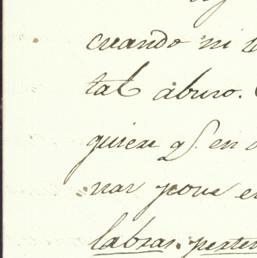 cuando ni
tal abuso.
quiere q.e en
nar para e
labras, perten